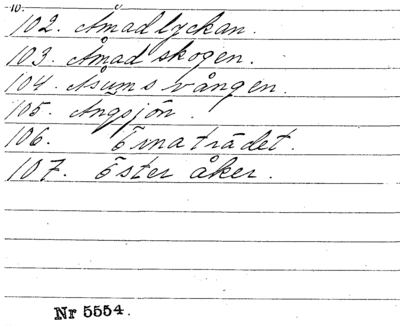 10.
102. Åmadlyckan.
103. Åmad skogen.
104. Åsumsvången.
105. Ängsjön.
106. Ennaträdet.
107. Öster åker.
Nr 5554.